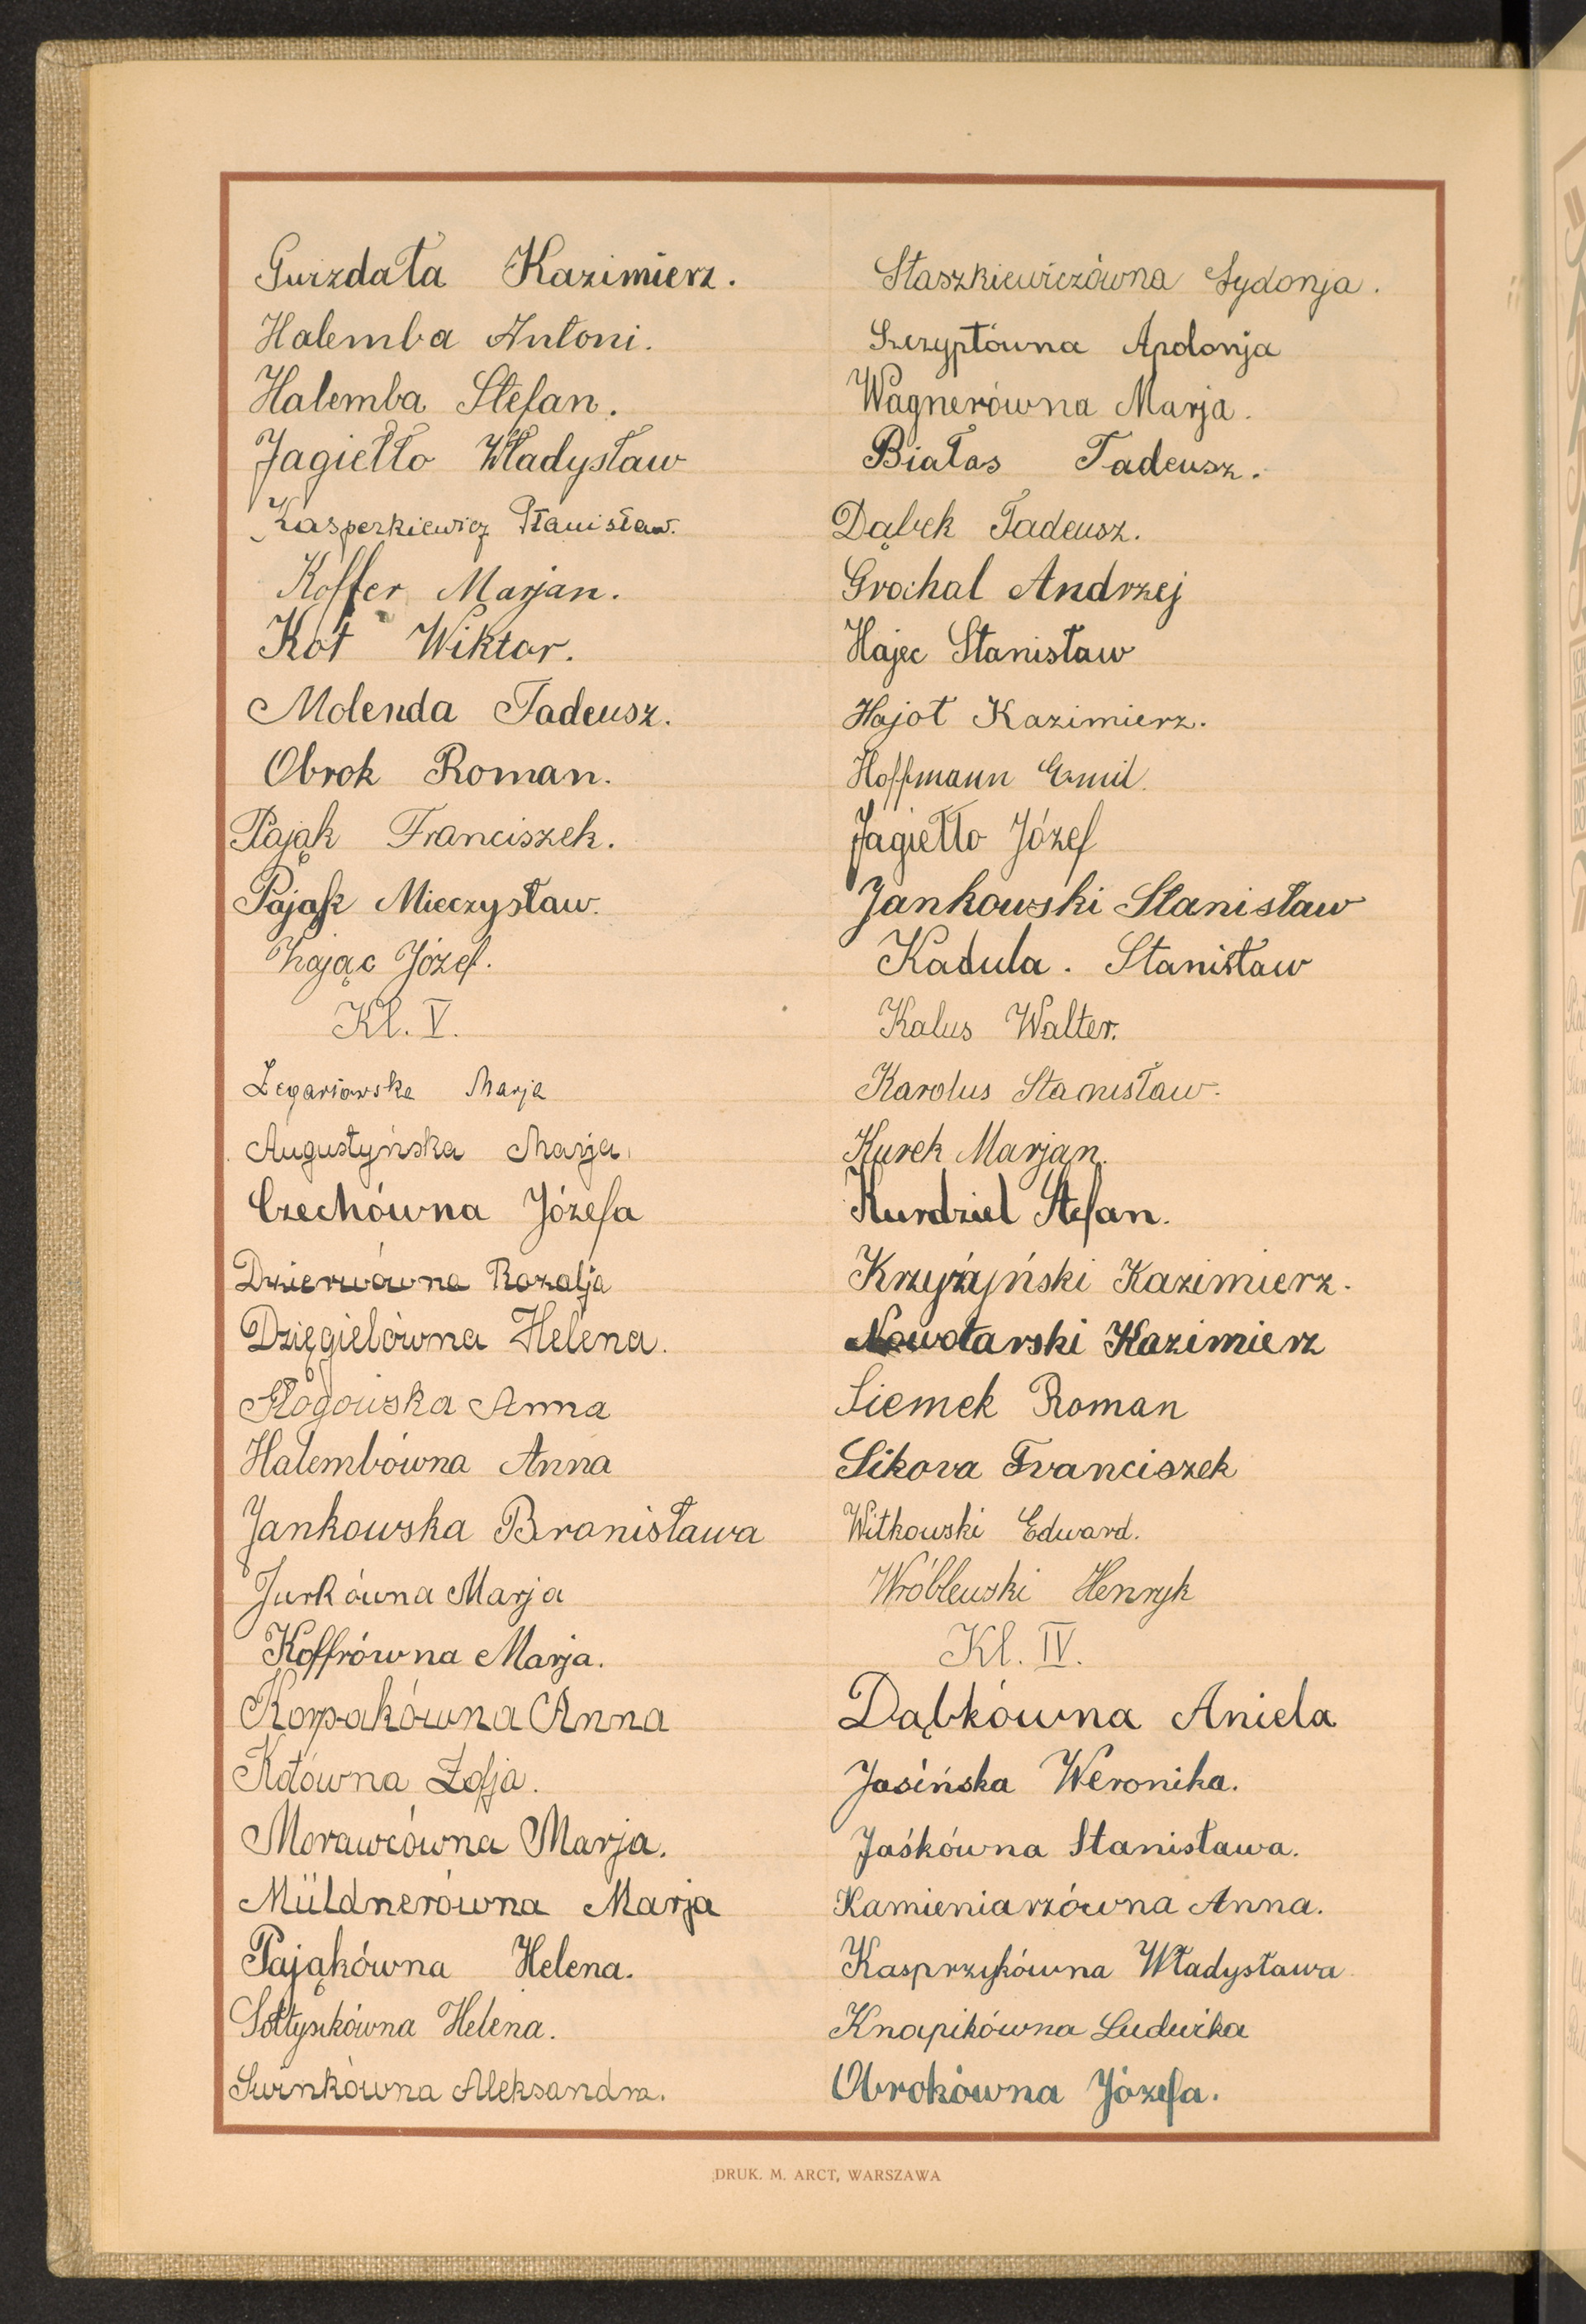 Gwizdała Kazimierz.
Halemba Antoni.
Halemba Stefan.
Jagiełło Władysław
Kasperkiewicz Stanisław.
Koffer Marjan.
Kot Wiktor.
Molenda Tadeusz.
Obrok Roman.
Pająk Franciszek.
Pająk Mieczysław.
Zając Józef.
Kl. V.
Marja
Augustyńska Marja.
Czechówna Józefa
Dzierwówna Rozalja
Dzięgielówna Helena.
Głogowska Anna
Halembówna Anna
Jankowska Bronisława
Jurkówna Marja
Koffrówna Marja.
Korpakówna Anna
Kotówna Zofja.
Morawcówna Marja.
Müldnerówna Marja
Pająkówna Helena.
Sołtysikówna Helena.
Świnkówna Aleksandra.
Staszkiewiczówna Sydonja.
Szczyptówna Apolonja
Wagnerówna Marja.
Białas Tadeusz.
Dąbek Tadeusz.
Grochal Andrzej
Hajec Stanisław
Hajot Kazimierz.
Hoffmann Emil.
Jagiełło Józef
Jankowski Stanisław
Kadula. Stanisław
Kalus Walter.
Karolus Stanisław.
Kurek Marjan.
Kurdziel Stefan.
Krzyżyński Kazimierz.
Nowotarski Kazimierz
Siemek Roman
Sikora Franciszek
Witkowski Edward.
Wróblewski Henryk
Kl. IV.
Dąbkówna Aniela
Jasińska Weronika.
Jaśkówna Stanisława.
Kamieniarzówna Anna.
Kasprzykówna Władysława
Knapikówna Ludwika
Obrokówna Józefa.
DRUK. M. ARCT, WARSZAWA